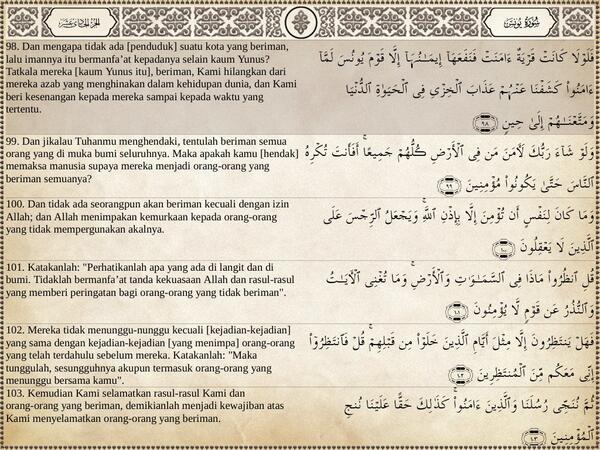 سُورَةُ يُونُسَ
98. Dan mengapa tidak ada [penduduk] suatu kota yang beriman,
lalu imannya itu bermanfa'at kepadanya selain kaum Yunus?
Tatkala mereka [kaum Yunus itu], beriman, Kami hilangkan dari
mereka azab yang menghinakan dalam kehidupan dunia, dan Kami
beri kesenangan kepada mereka sampai kepada waktu yang
tertentu.
فَلَوْلَا كَانَتْ قَرْيَةٌ ءَامَنَتْ فَنَفَعَهَآ إِيمَـٰنُهَآ إِلَّا قَوْمَ يُونُسَ لَمَّآ
ءَامَنُوا۟ كَشَفْنَا عَنْهُمْ عَذَابَ ٱلْخِزْىِ فِى ٱلْحَيَوٰةِ ٱلدُّنْيَا
وَمَتَّعْنَـٰهُمْ إِلَىٰ حِينٍ ٩٨
99. Dan jikalau Tuhanmu menghendaki, tentulah beriman semua
orang yang di muka bumi seluruhnya. Maka apakah kamu [hendak]
memaksa manusia supaya mereka menjadi orang-orang yang
beriman semuanya?
وَلَوْ شَآءَ رَبُّكَ لَـَٔامَنَ مَن فِى ٱلْأَرْضِ كُلُّهُمْ جَمِيعًا ۚ أَفَأَنتَ تُكْرِهُ
ٱلنَّاسَ حَتَّىٰ يَكُونُوا۟ مُؤْمِنِينَ ٩٩
100. Dan tidak ada seorangpun akan beriman kecuali dengan izin
Allah; dan Allah menimpakan kemurkaan kepada orang-orang
yang tidak mempergunakan akalnya.
وَمَا كَانَ لِنَفْسٍ أَن تُؤْمِنَ إِلَّا بِإِذْنِ ٱللَّهِ ۚ وَيَجْعَلُ ٱلرِّجْسَ عَلَى
ٱلَّذِينَ لَا يَعْقِلُونَ
101. Katakanlah: "Perhatikanlah apa yang ada di langit dan di
bumi. Tidaklah bermanfa'at tanda kekuasaan Allah dan rasul-rasul
yang memberi peringatan bagi orang-orang yang tidak beriman".
قُلِ ٱنظُرُوا۟ مَاذَا فِى ٱلسَّمَـٰوَٰتِ وَٱلْأَرْضِ ۚ وَمَا تُغْنِى ٱلْـَٔايَـٰتُ
وَٱلنُّذُرُ عَن قَوْمٍ لَّا يُؤْمِنُونَ
102. Mereka tidak menunggu-nunggu kecuali [kejadian-kejadian]
yang sama dengan kejadian-kejadian [yang menimpa] orang-orang
yang telah terdahulu sebelum mereka. Katakanlah: "Maka
tunggulah, sesungguhnya akupun termasuk orang-orang yang
menunggu bersama kamu".
فَهَلْ يَنتَظِرُونَ إِلَّا مِثْلَ أَيَّامِ ٱلَّذِينَ خَلَوْا۟ مِن قَبْلِهِمْ ۚ قُلْ فَٱنتَظِرُوٓا۟
إِنِّى مَعَكُم مِّنَ ٱلْمُنتَظِرِينَ
103. Kemudian Kami selamatkan rasul-rasul Kami dan
orang-orang yang beriman, demikianlah menjadi kewajiban atas
Kami menyelamatkan orang-orang yang beriman.
ثُمَّ نُنَجِّى رُسُلَنَا وَٱلَّذِينَ ءَامَنُوا۟ ۚ كَذَٰلِكَ حَقًّا عَلَيْنَا نُنجِ
ٱلْمُؤْمِنِينَ